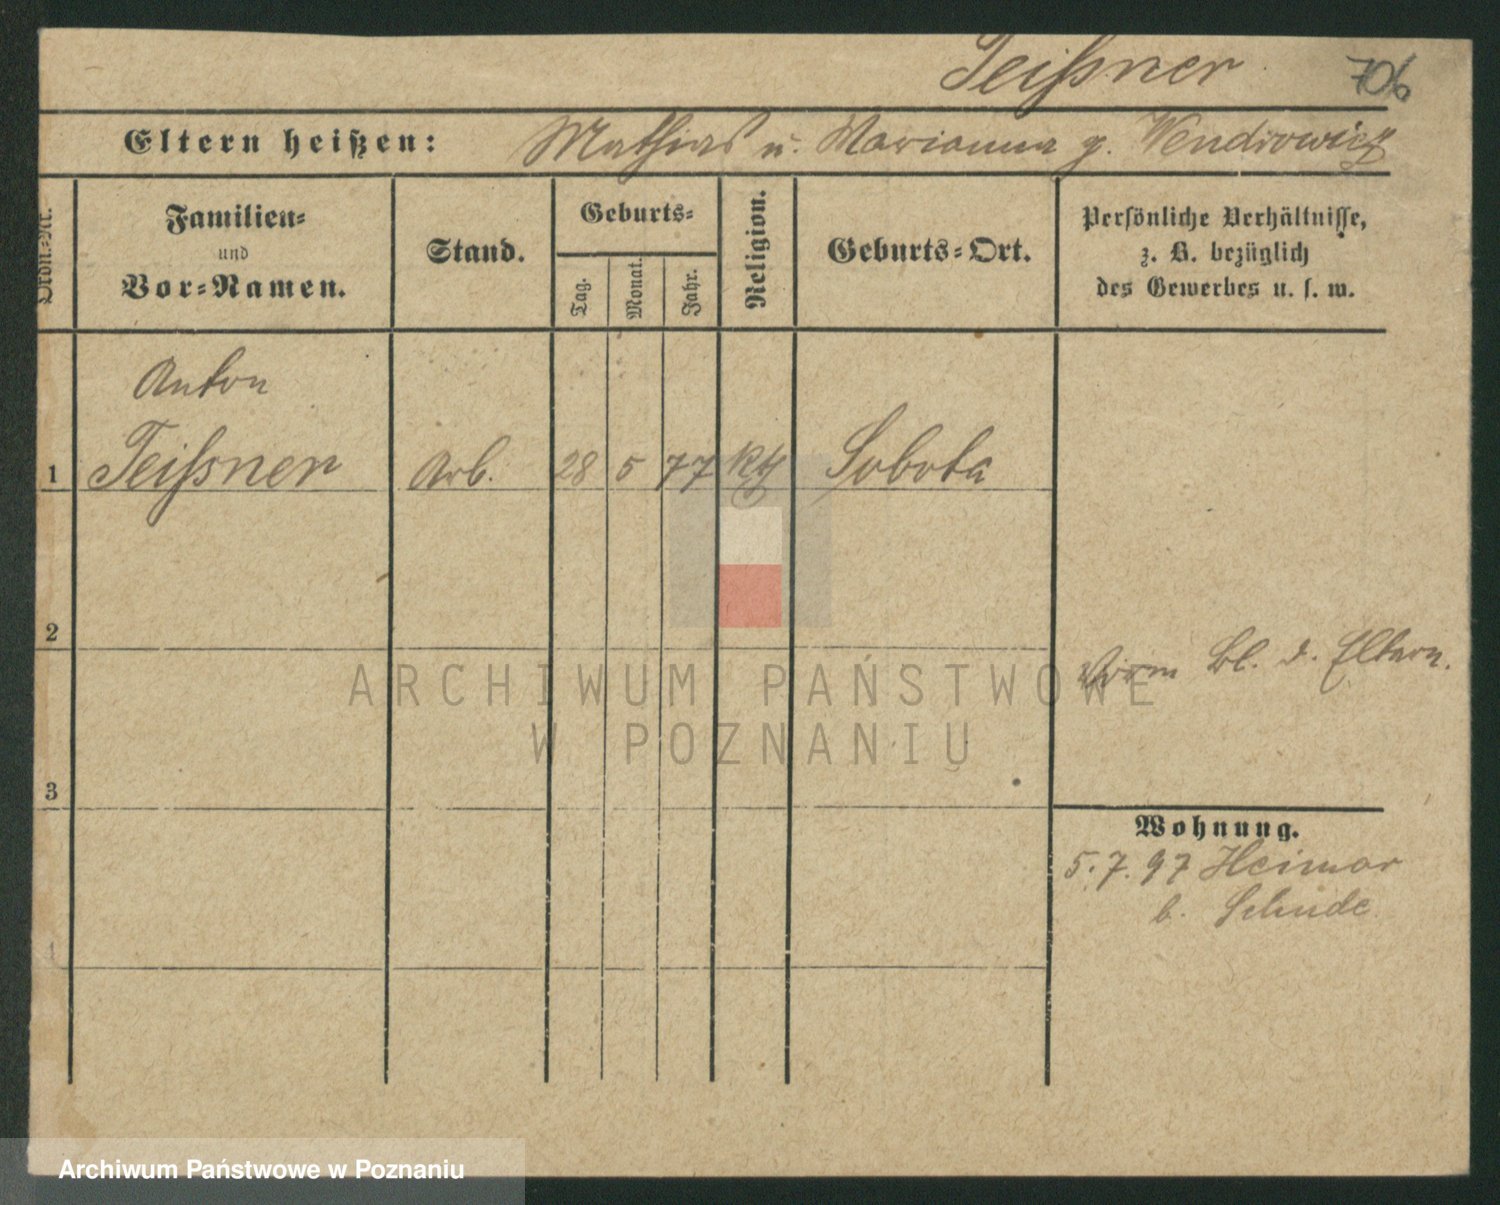 Teißner
706
Eltern heißen: Mathias u. Marianna g. Wendrowicz
Ordn.-Nr.
Familien-
und
Vor-Namen.
Stand.
Geburts-
Tag.
Monat.
Jahr.
Religion.
Geburts-Ort.
Persönliche Verhältnisse,
z. B. bezüglich
des Gewerbes u. s. w.
Anton
1 Teißner Arb. 28 5 77 Kth Sobota
2
Bl. d. Eltern.
3
4
Wohnung.
5.7.97
b.
ARCHIWUM PAŃSTWOWE
W POZNANIU
Archiwum Państwowe w Poznaniu